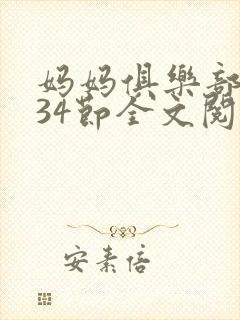 妈妈俱樂部
34節全文閱
安素倍